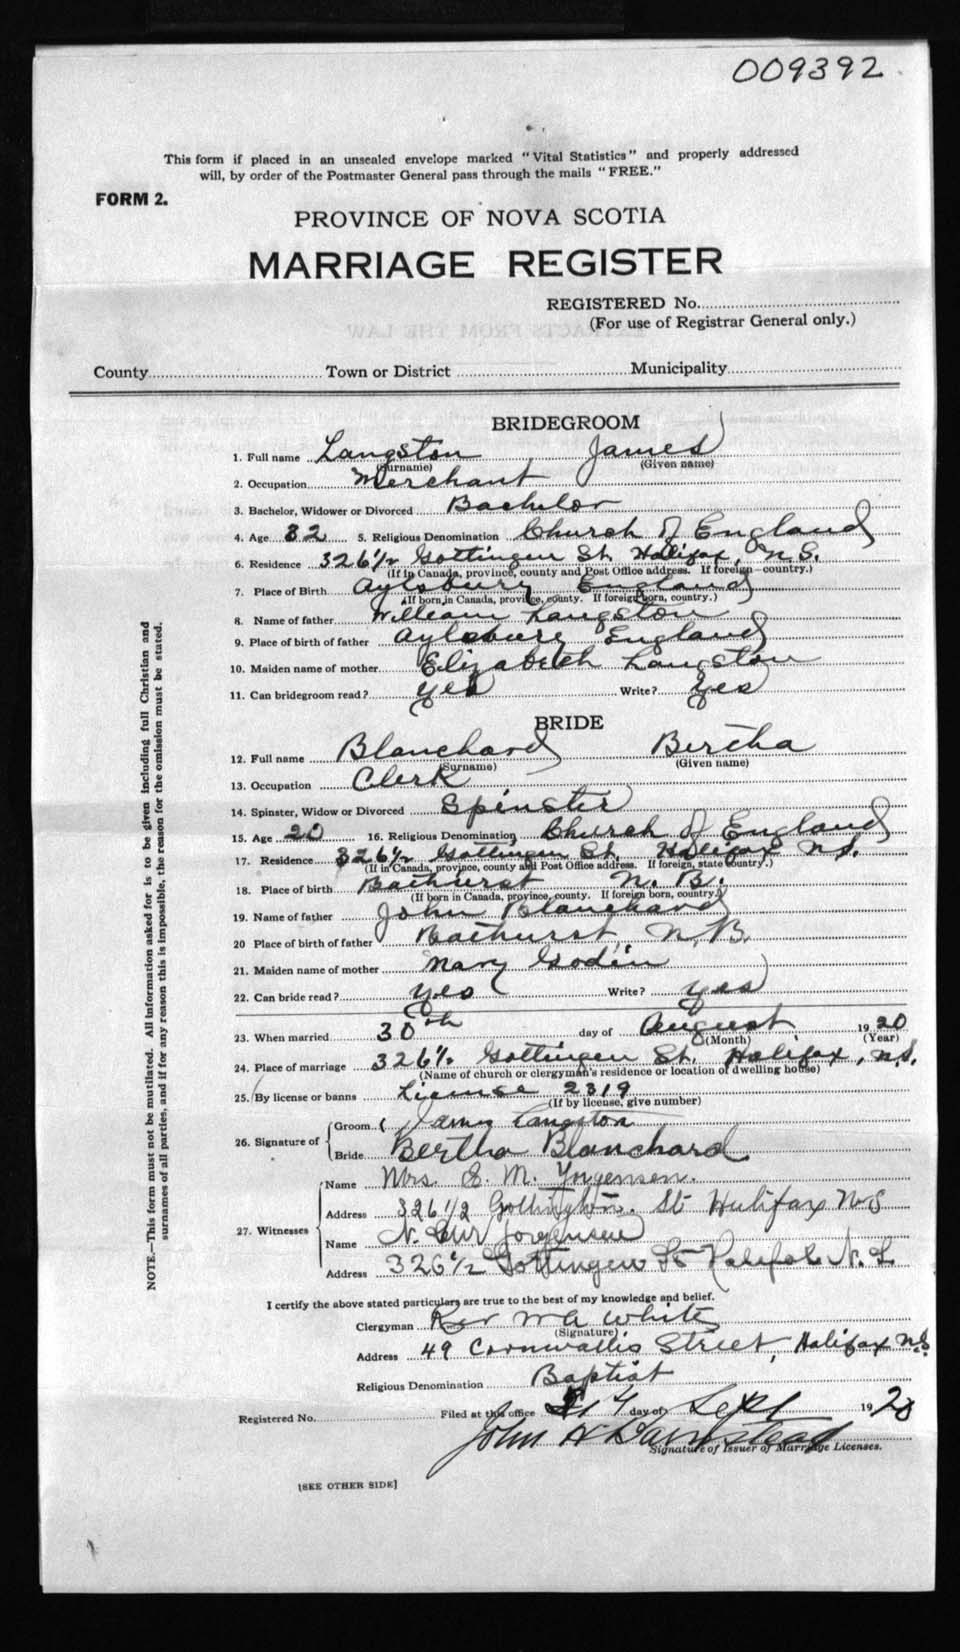 009392
This form if placed in an unsealed envelope marked "Vital Statistics" and properly addressed
will, by order of the Postmaster General pass through the mails "FREE."
FORM 2.
PROVINCE OF NOVA SCOTIA
MARRIAGE REGISTER
REGISTERED No.
(For use of Registrar General only.)
County Town or District Municipality
BRIDEGROOM
1. Full name Langston James
(Surname) (Given name)
2. Occupation Merchant
3. Bachelor, Widower or Divorced Bachelor
4. Age 32 5. Religious Denomination Church of England
6. Residence 326 1/2 Gottingen St. Halifax, N.S.
(If in Canada, province, county and Post Office address. If foreign country.)
7. Place of Birth Aylsbury England
(If born in Canada, province, county. If foreign born, country.)
8. Name of father William Langston
9. Place of birth of father Aylsbury England
10. Maiden name of mother Elizabeth Langston
11. Can bridegroom read? Yes Write? Yes
BRIDE
12. Full name Blanchard Bertha
(Surname) (Given name)
13. Occupation Clerk
14. Spinster, Widow or Divorced Spinster
15. Age 20 16. Religious Denomination Church of England
17. Residence 326 1/2 Gottingen St. Halifax N.S.
(If in Canada, province, county and Post Office address. If foreign, state country.)
18. Place of birth Bathurst N.B.
(If born in Canada, province, county. If foreign born, country.)
19. Name of father John Blanchard
20 Place of birth of father Bathurst, N.B.
21. Maiden name of mother Mary Godin
22. Can bride read? Yes Write? Yes
23. When married 30th day of August 1920
(Month) (Year)
24. Place of marriage 326 1/2 Gottingen St. Halifax, N.S.
(Name of church or clergyman's residence or location of dwelling house)
25. By license or banns License 2319
(If by license, give number)
26. Signature of Groom James Langston
Bride Bertha Blanchard
27. Witnesses Name Mrs. E. M. Jorgensen.
Address 326 1/2 Gottington. St Halifax N S
Name N. Jorgensen
Address 326 1/2 Gottingen St Halifax N. S.
I certify the above stated particulars are true to the best of my knowledge and belief.
Clergyman Rev W A White
(Signature)
Address 49 Cornwallis Street, Halifax N.S.
Religious Denomination Baptist
Registered No. Filed at this office day of Sept 1920
John
Signature of Issuer of Marriage Licenses.
[SEE OTHER SIDE]
NOTE.—This form must not be mutilated. All information asked for is to be given including full Christian and
surnames of all parties, and if for any reason this is impossible, the reason for the omission must be stated.